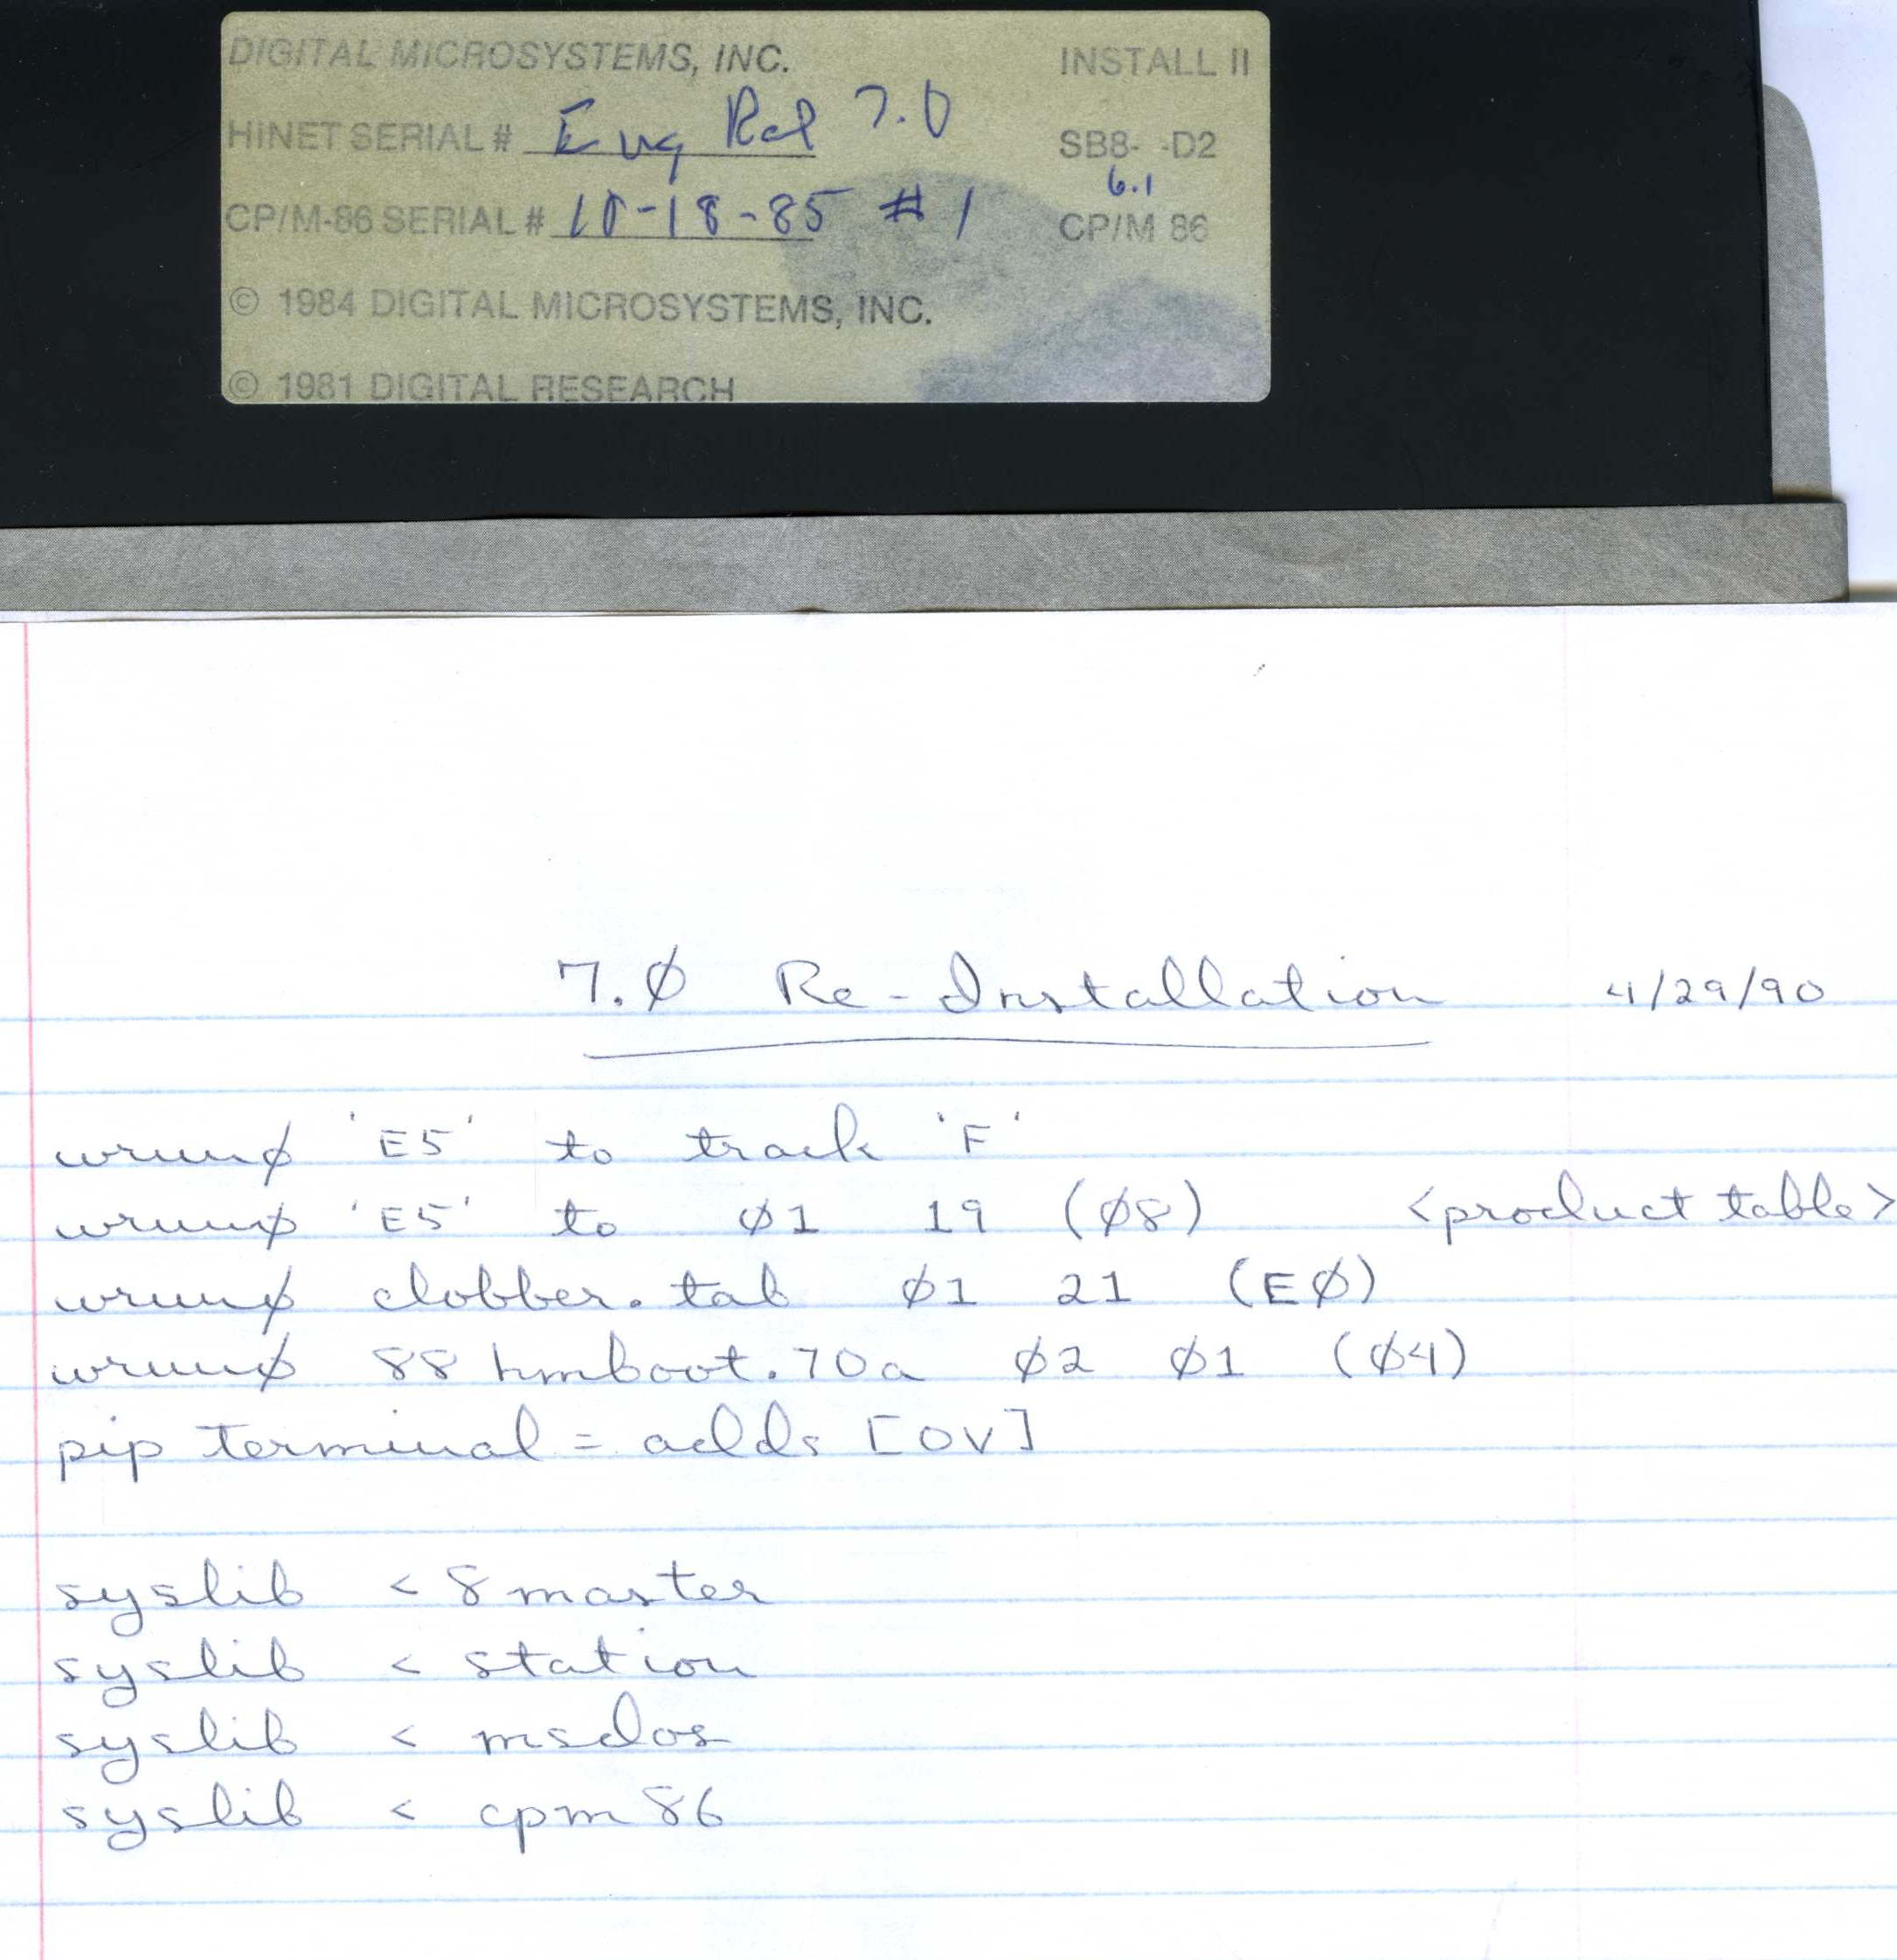 DIGITAL MICROSYSTEMS, INC. INSTALL II
HINET SERIAL # Eng Rel 7.0 SB8- -D2
6.1
CP/M-86 SERIAL # 10-18-85 #1 CP/M 86
© 1984 DIGITAL MICROSYSTEMS, INC.
© 1981 DIGITAL RESEARCH
7.Ø Re-Installation 4/29/90
'E5' to track 'F'
'E5' to Ø1 19 (Ø8) <product table>
clobber.tab Ø1 21 (EØ)
88hmboot.70a Ø2 Ø1 (Ø4)
pip terminal = adds [OV]
syslib < 8master
syslib < station
syslib < msdos
syslib < cpm86